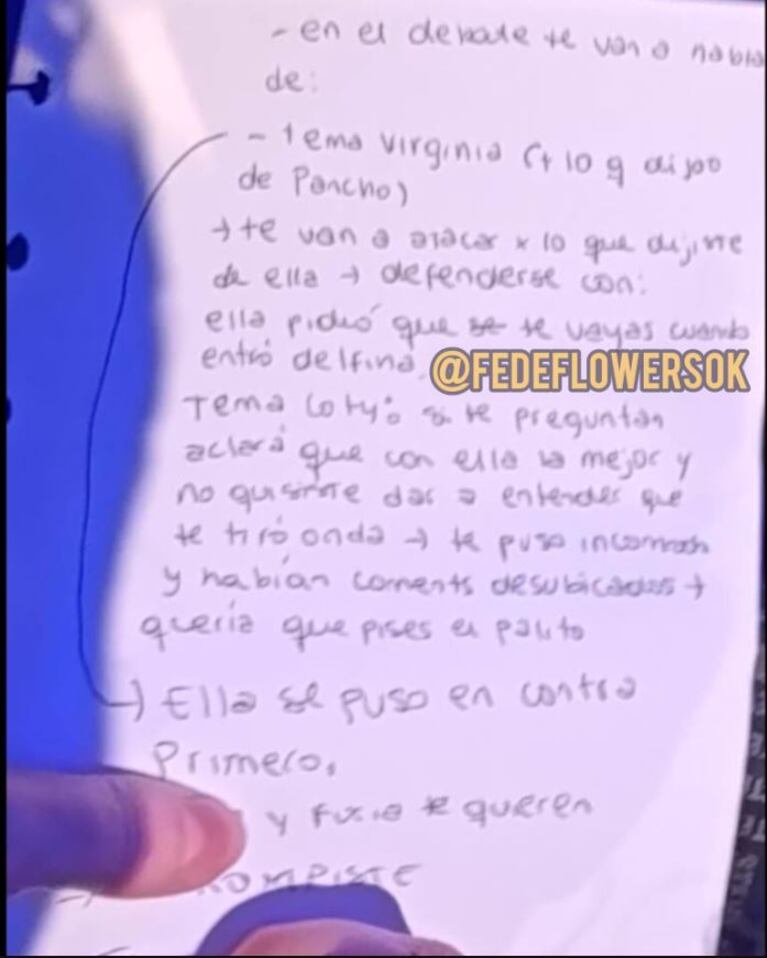 - en el debate te van a habla
de:
- Tema Virginia (+ lo q dijo
de Pancho)
→ te van a atacar x lo que dijiste
de ella → defenderse con:
ella pidió que se te vayas cuando
entró delfina.
@FEDEFLOWERSOK
Tema Coty: si te preguntan
aclará que con ella lo mejor y
no quisiste dar a entender que
te tiró onda → te puso incomodo
y habían coments desubicados →
quería que pises el palito
→ Ella se puso en contra
Primero.
y furia te queren
ROMPISTE